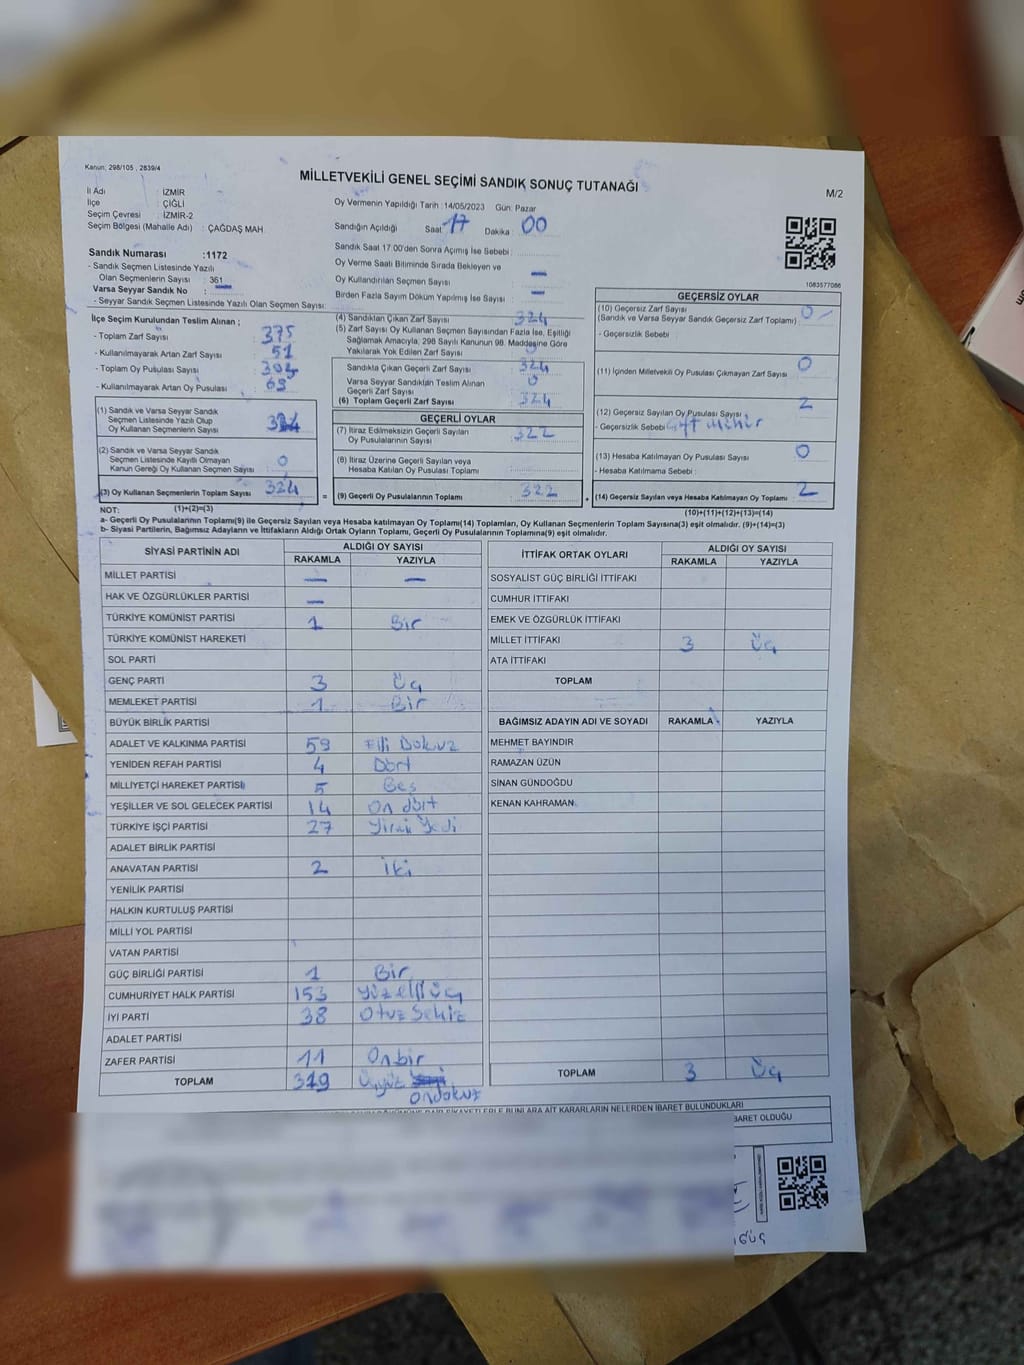 Kanun: 298/105 , 2839/4
MİLLETVEKİLİ GENEL SEÇİMİ SANDIK SONUÇ TUTANAĞI
M/2
İl Adı : İZMİR
İlçe : ÇİĞLİ
Seçim Çevresi : İZMİR-2
Seçim Bölgesi (Mahalle Adı) : ÇAĞDAŞ MAH.
Oy Vermenin Yapıldığı Tarih : 14/05/2023 Gün: Pazar
Sandığın Açıldığı Saat 17 Dakika : 00
Sandık Saat 17:00'den Sonra Açımış İse Sebebi :
Oy Verme Saati Bitiminde Sırada Bekleyen ve
Oy Kullandırılan Seçmen Sayısı : —
Birden Fazla Sayım Döküm Yapılmış İse Sayısı : —
1083577086
Sandık Numarası : 1172
- Sandık Seçmen Listesinde Yazılı
Olan Seçmenlerin Sayısı : 361
Varsa Seyyar Sandık No : —
- Seyyar Sandık Seçmen Listesinde Yazılı Olan Seçmen Sayısı:
İlçe Seçim Kurulundan Teslim Alınan ;
- Toplam Zarf Sayısı : 375
- Kullanılmayarak Artan Zarf Sayısı : 51
- Toplam Oy Pusulası Sayısı :
- Kullanılmayarak Artan Oy Pusulası :
(1) Sandık ve Varsa Seyyar Sandık
Seçmen Listesinde Yazılı Olup
Oy Kullanan Seçmenlerin Sayısı : 324
(2) Sandık ve Varsa Seyyar Sandık
Seçmen Listesinde Kayıtlı Olmayan
Kanun Gereği Oy Kullanan Seçmen Sayısı : 0
(3) Oy Kullanan Seçmenlerin Toplam Sayısı : 324
(1)+(2)=(3)
(4) Sandıktan Çıkan Zarf Sayısı : 324
(5) Zarf Sayısı Oy Kullanan Seçmen Sayısından Fazla İse, Eşitliği
Sağlamak Amacıyla, 298 Sayılı Kanunun 98. Maddesine Göre
Yakılarak Yok Edilen Zarf Sayısı : 0
Sandıkta Çıkan Geçerli Zarf Sayısı : 324
Varsa Seyyar Sandıktan Teslim Alınan
Geçerli Zarf Sayısı : 0
(6) Toplam Geçerli Zarf Sayısı : 324
GEÇERLİ OYLAR
(7) İtiraz Edilmeksizin Geçerli Sayılan
Oy Pusulalarının Sayısı : 322
(8) İtiraz Üzerine Geçerli Sayılan veya
Hesaba Katılan Oy Pusulası Toplamı :
= (9) Geçerli Oy Pusulalarının Toplamı : 322
GEÇERSİZ OYLAR
(10) Geçersiz Zarf Sayısı
(Sandık ve Varsa Seyyar Sandık Geçersiz Zarf Toplamı) : 0
- Geçersizlik Sebebi :
(11) İçinden Milletvekili Oy Pusulası Çıkmayan Zarf Sayısı : 0
(12) Geçersiz Sayılan Oy Pusulası Sayısı : 2
- Geçersizlik Sebebi : Çift mühür
(13) Hesaba Katılmayan Oy Pusulası Sayısı : 0
- Hesaba Katılmama Sebebi :
+ (14) Geçersiz Sayılan veya Hesaba Katılmayan Oy Toplamı : 2
(10)+(11)+(12)+(13)=(14)
NOT:
a- Geçerli Oy Pusulalarının Toplamı(9) ile Geçersiz Sayılan veya Hesaba katılmayan Oy Toplamı(14) Toplamları, Oy Kullanan Seçmenlerin Toplam Sayısına(3) eşit olmalıdır. (9)+(14)=(3)
b- Siyasi Partilerin, Bağımsız Adayların ve İttifakların Aldığı Ortak Oyların Toplamı, Geçerli Oy Pusulalarının Toplamına(9) eşit olmalıdır.
SİYASİ PARTİNİN ADI ALDIĞI OY SAYISI
RAKAMLA YAZIYLA
MİLLET PARTİSİ — —
HAK VE ÖZGÜRLÜKLER PARTİSİ —
TÜRKİYE KOMÜNİST PARTİSİ 1 Bir
TÜRKİYE KOMÜNİST HAREKETİ
SOL PARTİ
GENÇ PARTİ 3 Üç
MEMLEKET PARTİSİ 1 Bir
BÜYÜK BİRLİK PARTİSİ
ADALET VE KALKINMA PARTİSİ 59 Elli Dokuz
YENİDEN REFAH PARTİSİ 4 Dört
MİLLİYETÇİ HAREKET PARTİSİ 5 Beş
YEŞİLLER VE SOL GELECEK PARTİSİ 14 On dört
TÜRKİYE İŞÇİ PARTİSİ 27 Yirmi Yedi
ADALET BİRLİK PARTİSİ
ANAVATAN PARTİSİ 2 İki
YENİLİK PARTİSİ
HALKIN KURTULUŞ PARTİSİ
MİLLİ YOL PARTİSİ
VATAN PARTİSİ
GÜÇ BİRLİĞİ PARTİSİ 1 Bir
CUMHURİYET HALK PARTİSİ 153 Yüzelli üç
İYİ PARTİ 38 Otuz Sekiz
ADALET PARTİSİ
ZAFER PARTİSİ 11 Onbir
TOPLAM 319 Üçyüz
ondokuz
İTTİFAK ORTAK OYLARI ALDIĞI OY SAYISI
RAKAMLA YAZIYLA
SOSYALİST GÜÇ BİRLİĞİ İTTİFAKI
CUMHUR İTTİFAKI
EMEK VE ÖZGÜRLÜK İTTİFAKI
MİLLET İTTİFAKI 3 Üç
ATA İTTİFAKI
TOPLAM
BAĞIMSIZ ADAYIN ADI VE SOYADI RAKAMLA YAZIYLA
MEHMET BAYINDIR
RAMAZAN ÜZÜN
SİNAN GÜNDOĞDU
KENAN KAHRAMAN
TOPLAM 3 Üç
AİT KARARLARIN NELERDEN İBARET BULUNDUKLARI
İBARET OLDUĞU